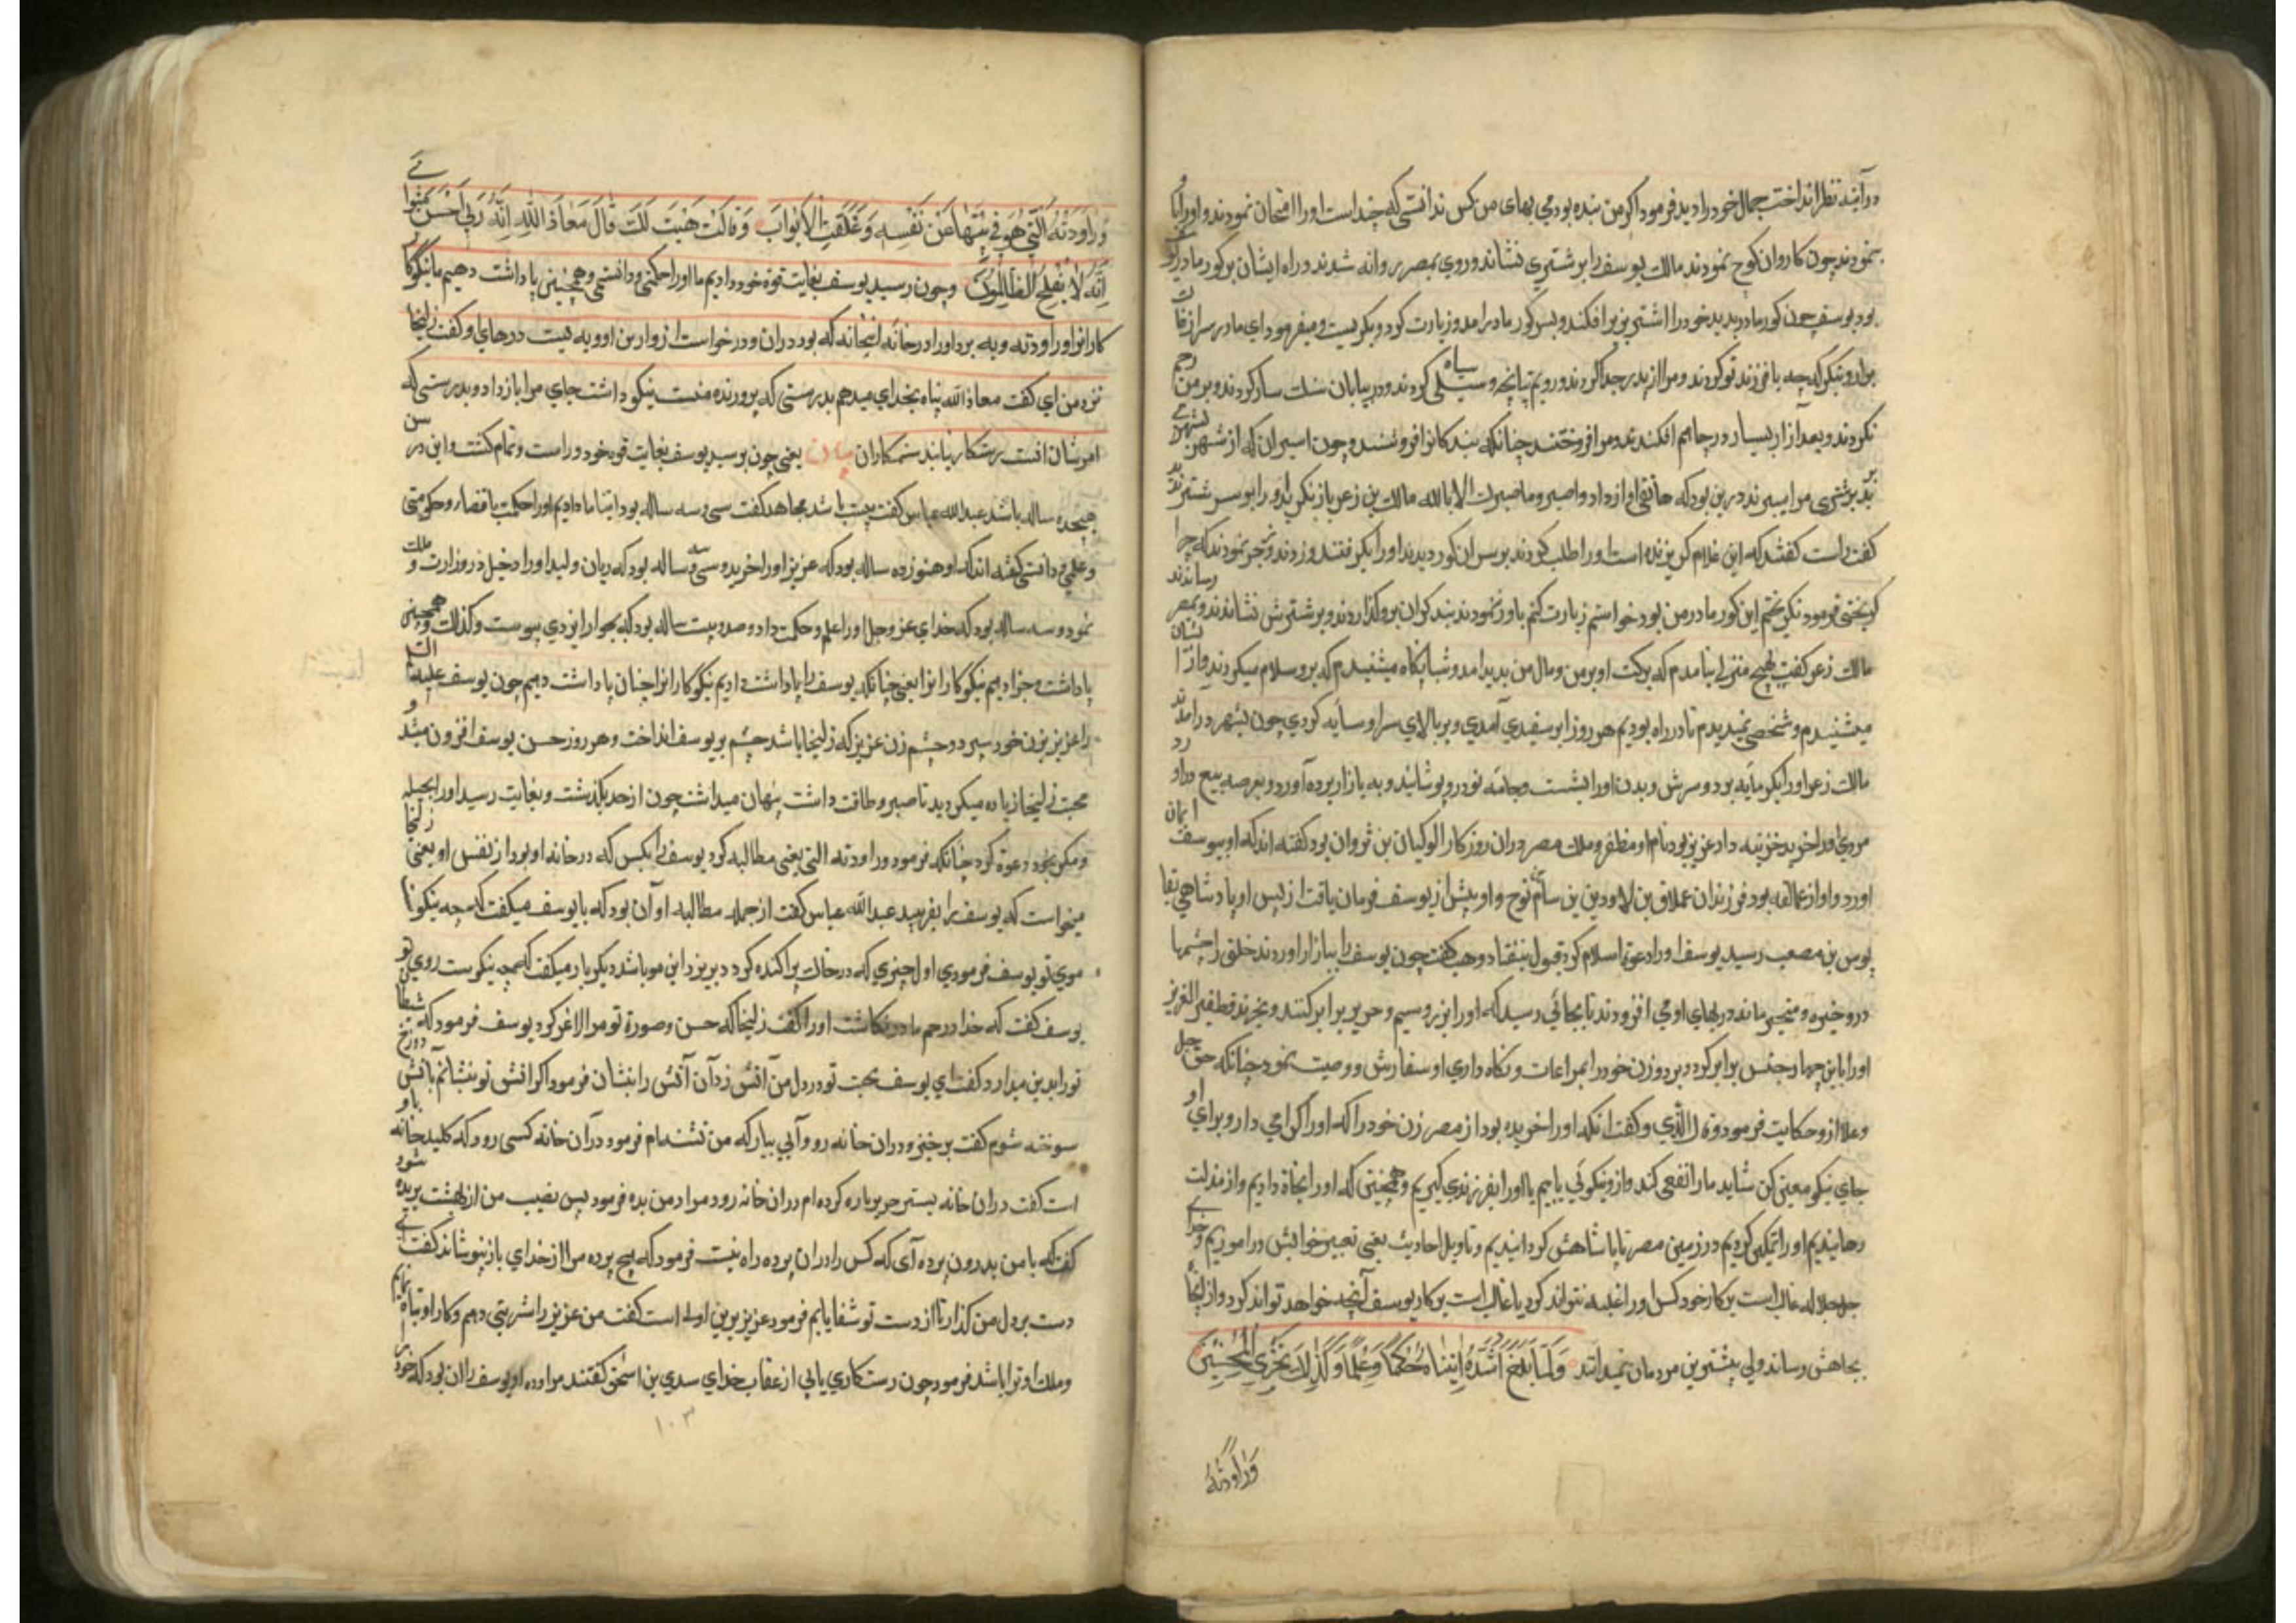 در آینه نظر انداخت جمال خود را دید فرمود اکر من بنده بودمی بهای من کس ندانستی که چند است او را امتحان نمودند و او را
نمودند چون کاروان کوچ نمودند مالک یوسف را بر شتری نشاند و روی بمصر روانه شدند در راه ایشان بر کور مادر
بود یوسف چون کور مادر بدید خود را از اشتر بزیر افکند و بسر کور مادر آمد و زیارت کرد و بکریست و میفرمود ای مادر سر از
بردار و بنکر که چه با فرزند تو کردند و مرا از پدر جدا کردند و رویم تپانچه و سیلی کردند و در بیابان سنک سار کردند و بر من رحم
نکردند و بعد از آن بسیار در چاهم افکندند و مرا فروختند چنانکه بندکانرا فروشند و چون اسیران که از
بر شتری مرا میبرند درین بود که هاتفی آواز داد و اصبر و ما صبرک الا بالله مالک بن زعر باز نکرید و را بر سر شتر
کفت راست کفتند که این غلام کریزنده است او را طلب کردند بر سر آن کور دیدند او را بکرفتند و زدند و زجر نمودند که چرا
کریختی فرمود نکریختم این کور مادر من بود خواستم زیارت کنم باور ننمودند بند کران برو کذاردند و بر شترش نشاندند و بمصر رساندند
مالک زعر کفت بهیچ منزلی نیامدم که برکت او بر من و مال من پدید آمد و شبانکاه میشنیدم که برو سلام میکردند و آواز
میشنیدم و شخصی نمیدیدم تا در راه بودیم هر روز ابر سفیدی آمدی و بر بالای سر او سایه کردی چون بشهر در آمدند
مالک زعر او را بکرمابه برد و سرش و بدن او را بشست و جامه نو درو پوشانید و به بازار برده آورد و بعرصه بیع در آورد
مردی او را خرید خزینه دار عزیز بود نام او مظفر و ملک مصر در آن روزکار الولیان بن ثروان بود کفته اند که او بیوسف ایمان
آورد و او از عمالقه بود فرزندان عملاق بن لاود بن سام نوح و او پیش از یوسف فرمان یافت از پس او پادشاهی
بوس بن مصعب رسید یوسف او را دعوة اسلام کرد قبول ننفتاد وهب کفت چون یوسف را ببازار آوردند خلق را چشمها
درو خیره و متحیر ماند در بهای او می افزودند تا بجائی رسید که او را بزر و سیم و حریر برابر کنند و بخرند قطفیر العزیز
او را با این چهار جنس برابر کرد و ببرد و زن خود را بمراعات و نکاه داری او سفارش و وصیت نمود چنانکه حق جل
و علا ازو حکایت فرمود و قال الذی و کفت آنکه او را خریده بود از مصر زن خود را که او را کرامی دار و برای او
جای نیکو معین کن شاید ما را نفعی کند و ازو نیکوئی یابیم یا او را بفرزندی کیریم و همچنین که او را نجاة دادیم و از مذلت
رهانیدیم او را تمکین کردیم در زمین مصر تا پادشاهش کردانیدیم و تاویل احادیث یعنی تعبیر خوابش در آموزیم و خدای
جل جلاله غالب است بر کار خود کس او را غلبه نتواند کرد یا غالب است بر کار یوسف آنچه خواهد تواند کرد و از آنجا
بجاهش رساند ولی بیشترین مردمان نمیدانند وَلَمَّا بَلَغَ أَشُدَّهُ آتَيْنَاهُ حُكْمًا وَعِلْمًا وَكَذَلِكَ نَجْزِي الْمُحْسِنِينَ
وَرَاوَدَتْهُ
وَرَاوَدَتْهُ الَّتِي هُوَ فِي بَيْتِهَا عَنْ نَفْسِهِ وَغَلَّقَتِ الْأَبْوَابَ وَقَالَتْ هَيْتَ لَكَ قَالَ مَعَاذَ اللَّهِ إِنَّهُ رَبِّي أَحْسَنَ مَثْوَايَ
إِنَّهُ لَا يُفْلِحُ الظَّالِمُونَ و چون رسید یوسف بغایت قوة خود دادیم ما او را حکمتی و دانستی و همچنین پاداشت دهیم ما نیکو
کارانرا و راودته و به برد او را در خانه آنچنانه که بود در آن و در خواست از و ازین او و به بست درهای او کفت زلیخا
نزد من آی کفت معاذ الله پناه بخدای میدهم بدرستی که پرورنده منست نیکو داشت جای مرا باز داد و بدرستی که
امر شان افست رستکار نیابند ستمکاران بیان یعنی چون برسید یوسف بغایت قوه خود و راست و تمام کشت و این در سن
هیجده ساله باشد عبدالله عباس کفت بیست باشد مجاهد کفت سی و سه ساله بود آتینا ما دادیم او را حکمت با قضا و حکومتی
و علمی و دانستی کفته اند که او هنوزده ساله بود که عزیز او را خرید و سی و سه ساله بود که ریان ولید او را دخیل در وزارت و ملک
نمود و سه ساله بود که خدای عز و جل او را علم و حکمت داد و صد و بیست ساله بود که بجوار ایزدی پیوست و کذلک و همچنین
پاداشت و جزا دهیم نیکو کارانرا یعنی چنانکه یوسف را پاداشت دادیم نیکو کارانرا چنان پاداشت دهیم چون یوسف علیه السلم
را عزیز بزن خود سپرد و چشم زن عزیز که زلیخا باشد چشم بر یوسف انداخت و هر روز حسن یوسف افزون میشد و
محبت زلیخا زیاده میکردید تا صبر و طاقت داشت پنهان میداشت چون از حد بکذشت و بغایت رسید او را بحیله
و مکر بخود دعوة کرد چنانکه فرمود و راودته التی یعنی مطالبه کرد یوسف را آنکس که در خانه او بود از نفس او یعنی زلیخا
میخواست که یوسف را بفریبد عبدالله عباس کفت از جمله مطالبه او آن بود که با یوسف میکفت که چه نیکو
موی تو یوسف فرمودی اول چیزی که در خاک پراکنده کردد و بریزد این مو باشد دیکر بار میکفت که چه نیکوست روی تو
یوسف کفت که خدا در رحم مادر نکاشت او را کفت زلیخا که حسن و صورة تو مرا لاغر کرد یوسف فرمود که شیطان
تو را بدین میدارد کفت ای یوسف محبت تو در دل من آتش زد آن آتش را بنشان فرمود اکر آتش تو بنشانم بآتش دوزخ
سوخته شوم کفت برخیز و در آن خانه رو و آبی بیار که من تشنه ام فرمود در آن خانه کسی رود که کلید خانه باو
است کفت در آن خانه بستر حریر باره کرده ام در آن خانه رو و مراد من بده فرمود پس نصیب من از بهشت بریده شود
کفت که با من بدرون پرده آی که کس را در آن پرده راه نیست فرمود که هیچ پرده مرا از خدای باز نپوشاند کفت
دست بر دل من کذار تا از دست تو شفا یابم فرمود عزیز برین اولی است کفت من عزیز را شربتی دهم و کار او تباه نمایم
و ملک او ترا باشد فرمود چون رستکاری یابی از عقاب خدای سدی بن اسحق کفتند مراوده او یوسف را آن بود که خود
۱۰۳